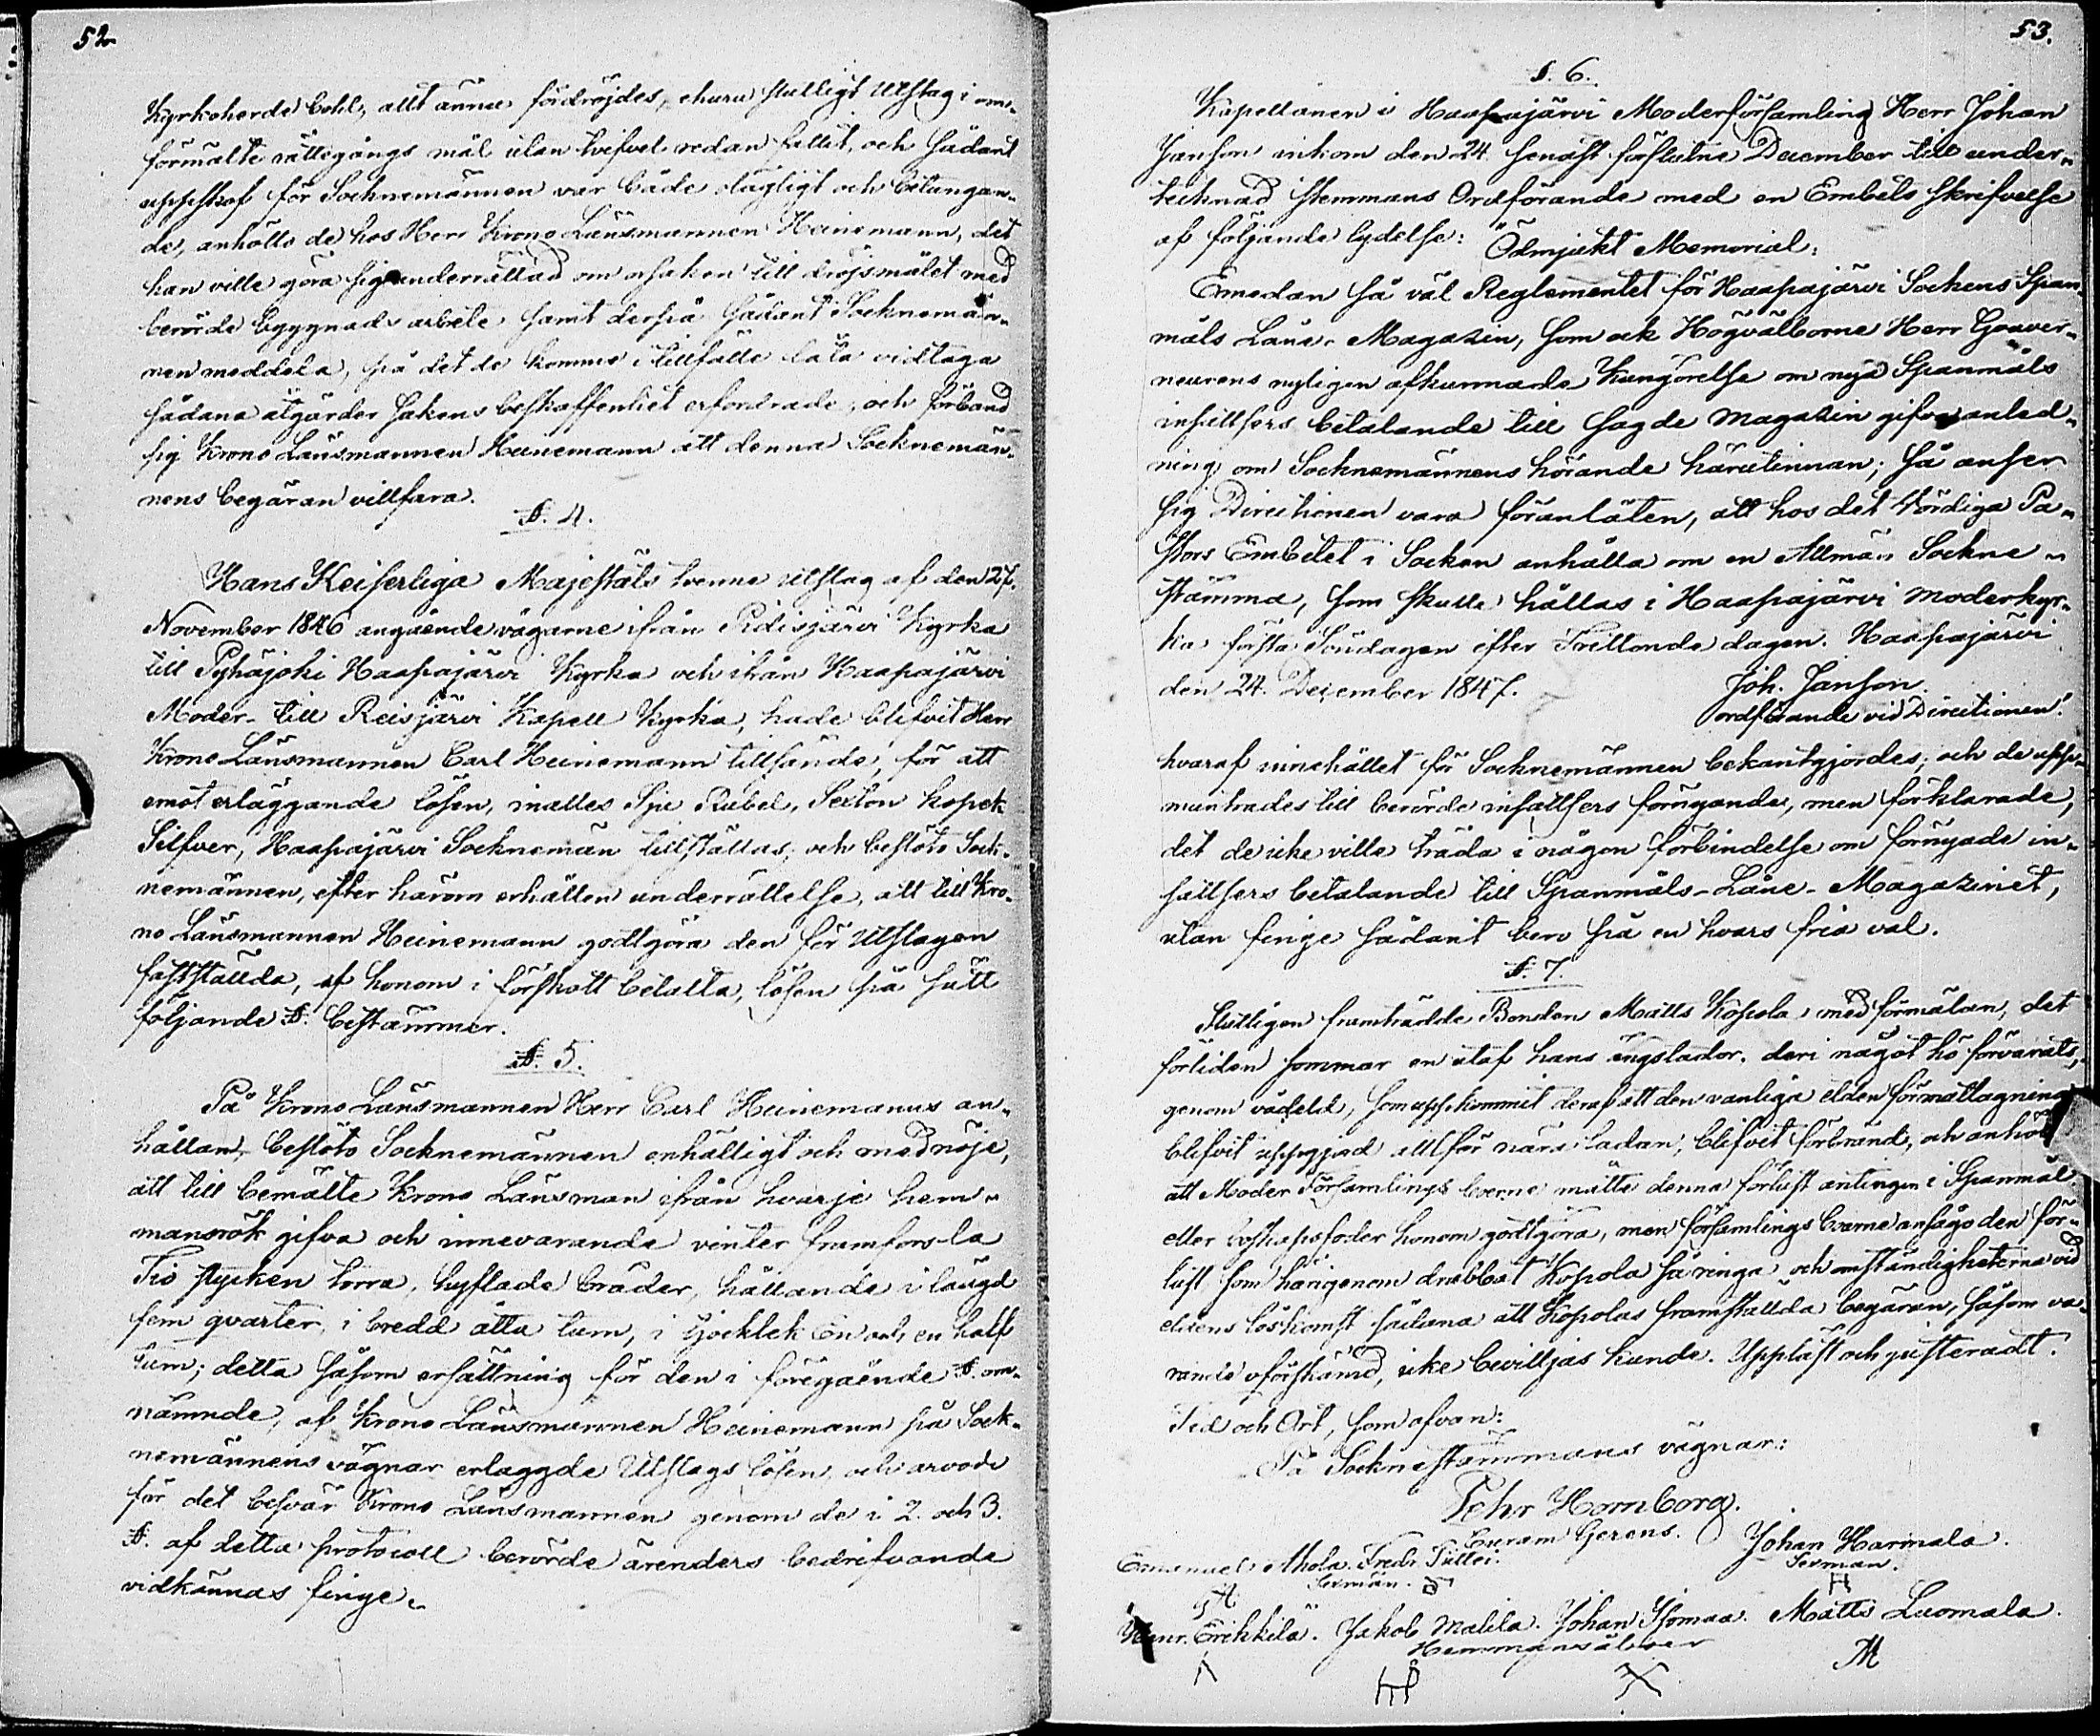 52
Kyrkoherde Bohl, allt ännu fördröjdes, ehuru slutligt Utslag i om-
förmälte rättegångs mål utan tvifvel redan fallit, och sådant
uppskof för Socknemännen var både olägligt och betungan-
de, anhöllo de hos Herr Krono Länsmannen Heinemann, det
han ville göra sig underrättad om orsaken till dröjsmålet med
berörde byggnads arbete samt derpå sådant Socknemän-
nen meddela, på det de komme i tillfälle låta vidtaga
sådana åtgärder sakens beskaffenhet erfordrade, och förband
sig Krono Länsmannen Heinemann att denna Socknemän-
nens begäran villfara.
§. 4.
Hans Keiserliga Majestäts tvenne utslag af den 27.
November 1846 angående vägarne ifrån Pidisjärvi Kyrka
till Pyhäjoki Haapajärvi Kyrka och ifrån Haapajärvi
Moder- till Reisjärvi Kapell Kyrka, hade blifvit Herr
Krono Länsmannen Carl Heinemann tillsände, för att
emot erläggande lösen, inalles Sju Rubel, Sexton kopek
Silfver, Haapajärvi Socknemän tillställas, och beslöto Sock-
nemännen, efter härom erhållen underrättelse, att till Kro-
no Länsmannen Heinemann godtgöra den för Utslagen
fastställda, af honom i förskott betalta, lösen på sätt
följande §. bestämmer.
§. 5.
På Krono Länsmannen Herr Carl Heinemanns an-
hållan, beslöto Socknemännen enhälligt och med nöje,
att till bemälte Krono Länsman ifrån hvarje hem-
mansrök gifva och innevarande vinter framforsla
Tio stycken torra, hyflade bräder, hållande i längd
fem qvarter, i bredd åtta tum, i tjocklek En och en half
tum; detta såsom ersättning för den i föregående §. om-
nämnde, af Krono Länsmannen Heinemann på Sock-
nemännens vägnar erlaggde Utslags lösen, och arvode
för det besvär Krono Länsmannen genom de i 2. och 3.
§. af detta protocoll berörde ärenders bedrifvande
vidkännas finge.
53.
§. 6.
Kapellanen i Haapajärvi Moderförsamling Herr Johan
Janson inkom den 24. senast förflutne December till under-
tecknad Stemmans Ordförande med en Embets skrifvelse
af följande lydelse: Ödmjukt Memorial:
Emedan så väl Reglementet för Haapajärvi Sockens Span-
måls Låne-Magasin, som ock Högvälborne Herr Gouver-
neurens nyligen afkunnade Kungörelse om nya Spanmåls
insättsers betalande till sagde Magazin gifva anled-
ning om Socknemännens hörande härutinnan; så anser
sig Directionen vara föranlåten, att hos det Vördiga Pa-
stors Embetet i Socken anhålla om en Allmän Sockne-
stämma, som skulle hållas i Haapajärvi moderkyr-
ka första Söndagen efter Trettonde dagen. Haapajärvi
den 24. December 1847. Joh. Janson.
ordförande vid Directionen.
hvaraf innehållet för Socknemännen bekantgjordes; och de upp-
muntrades till berörde insättsers förnyande, men förklarade,
det de icke ville träda i någon förbindelse om förnyade in-
sättsers betalande till Spanmåls-Låne-Magazinet,
utan finge sådant bero på en hvars fria val.
§. 7.
Slutligen framträdde Bonden Matts Kopola med förmälan, det
förliden sommar en utaf hans ängslador, deri något hö förvarats,
genom vådeld, som uppkommit deraf att den vanliga elden för mattagning
blifvit uppgjord alltför nära ladan, blifvit förbränd, och anhöl
att Moder Församlings boerne måtte denna förlust antingen i Spanmål
eller boskapsfoder honom godtgöra, men församlings boerne ansågo den för-
lust som härigenom drabbat Kopola så ringa och omständigheterna vid
eldens löskomst sådana att Kopolas framställda begäran, såsom va-
rande oförskämd, icke bevilljas kunde. Uppläst och justeradt.
Tid och Ort, som ofvan:
På Socknestämmans vägnar:
Pehr Hornborg.
Curam Gerens.
Emanuel Ahola. Fredr. Tuttoi. Johan Harmala.
Sexmän. Sexman.
Henr. Erkkilä. Jakob Malila. Johan Isomaa. Matts Luomala.
Hemmansålvar
M